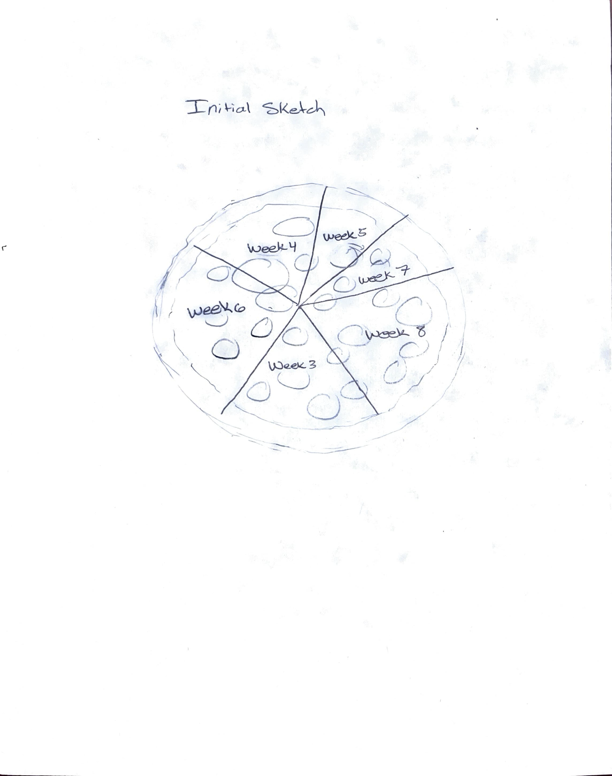 Initial Sketch
Week 4
Week 5
Week 7
Week 6
Week 8
Week 3